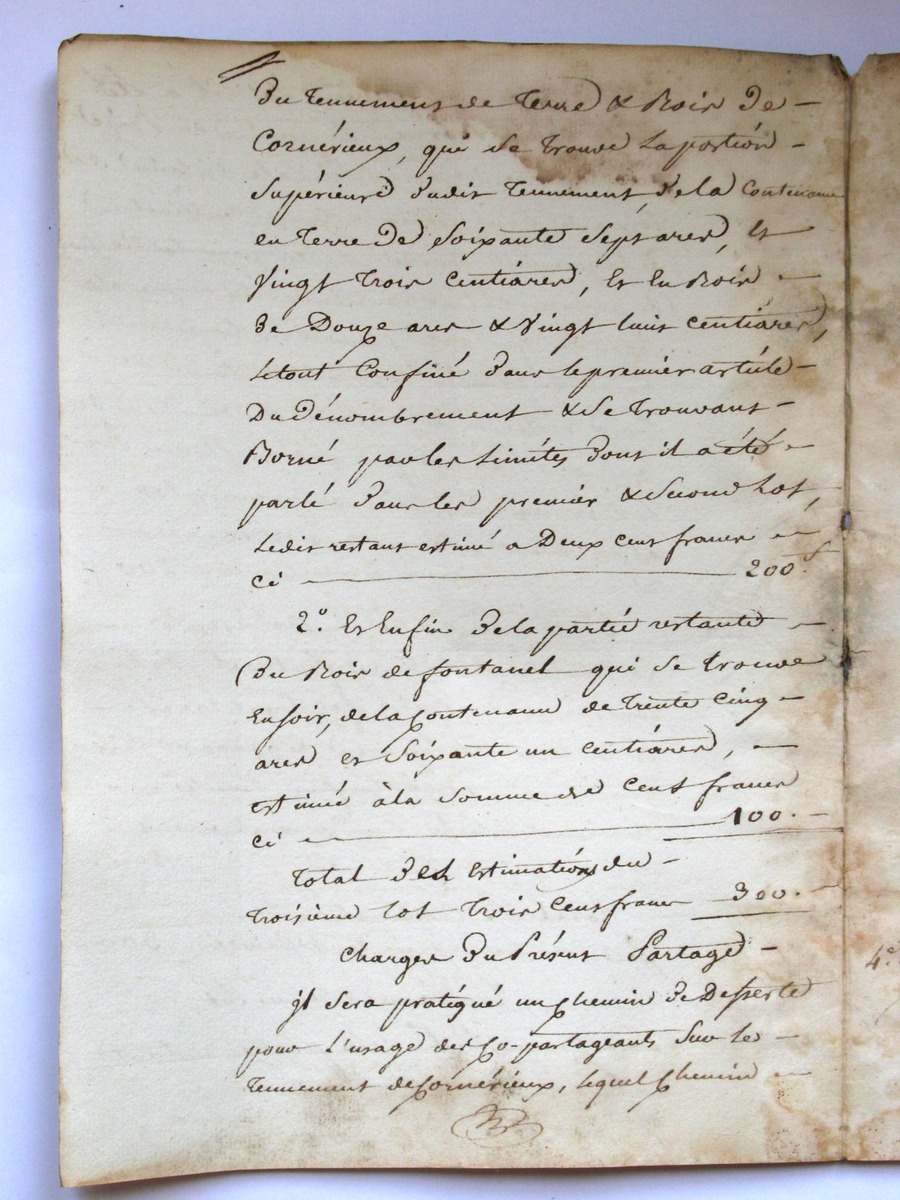 Du tennement de terre & Bois de
Cornérieux, qui se trouve la portion
Supérieure dudit tennement, de la Contenance
en terre de Soixante Sept ares, et
Vingt trois Centiares, et en Bois
de Douze ares & Vingt huit Centiares,
Le tout Confiné dans le premier article
Du dénombrement & se trouvant
Borné par les Limites dont il a été
parlé dans les premier & second Lot,
Ledit restant estimé a Deux cent francs
Ci 200.f
2.° Et Enfin de la partie restante
Du Bois de fontanel qui se trouve
En soir, de la Contenance de trente Cinq
ares et Soixante un Centiares,
estimée à la somme de Cent francs
Ci 100.
Total des Estimations du
troisième lot trois Cent francs 300.
Charges du Présent Partage
il sera pratiqué un Chemin de Desserte
pour L'usage des Co-partageants Sur le
tennement de Cornérieux, lequel Chemin
4.°